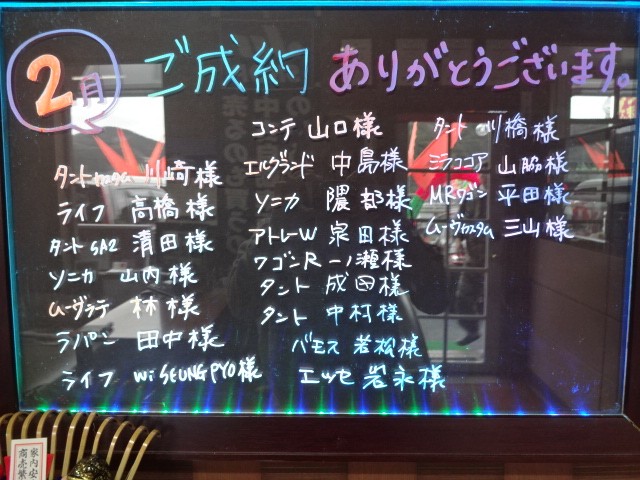 2月 ご成約 ありがとうございます。
タントカスタム 川崎様
ライフ 高橋様
タントSA2 清田様
ソニカ 山内様
ムーヴラテ 林様
ラパン 田中様
ライフ Wi SEUNGPYO様
コンテ 山口様
エルグランド 中島様
ソニカ 隈部様
アトレーW 泉田様
ワゴンR 一ノ瀬様
タント 成田様
タント 中村様
バモス 若松様
エッセ 岩永様
タント 川橋様
ミラココア 山脇様
MRワゴン 平田様
ムーヴカスタム 三山様
家内安
商売繁